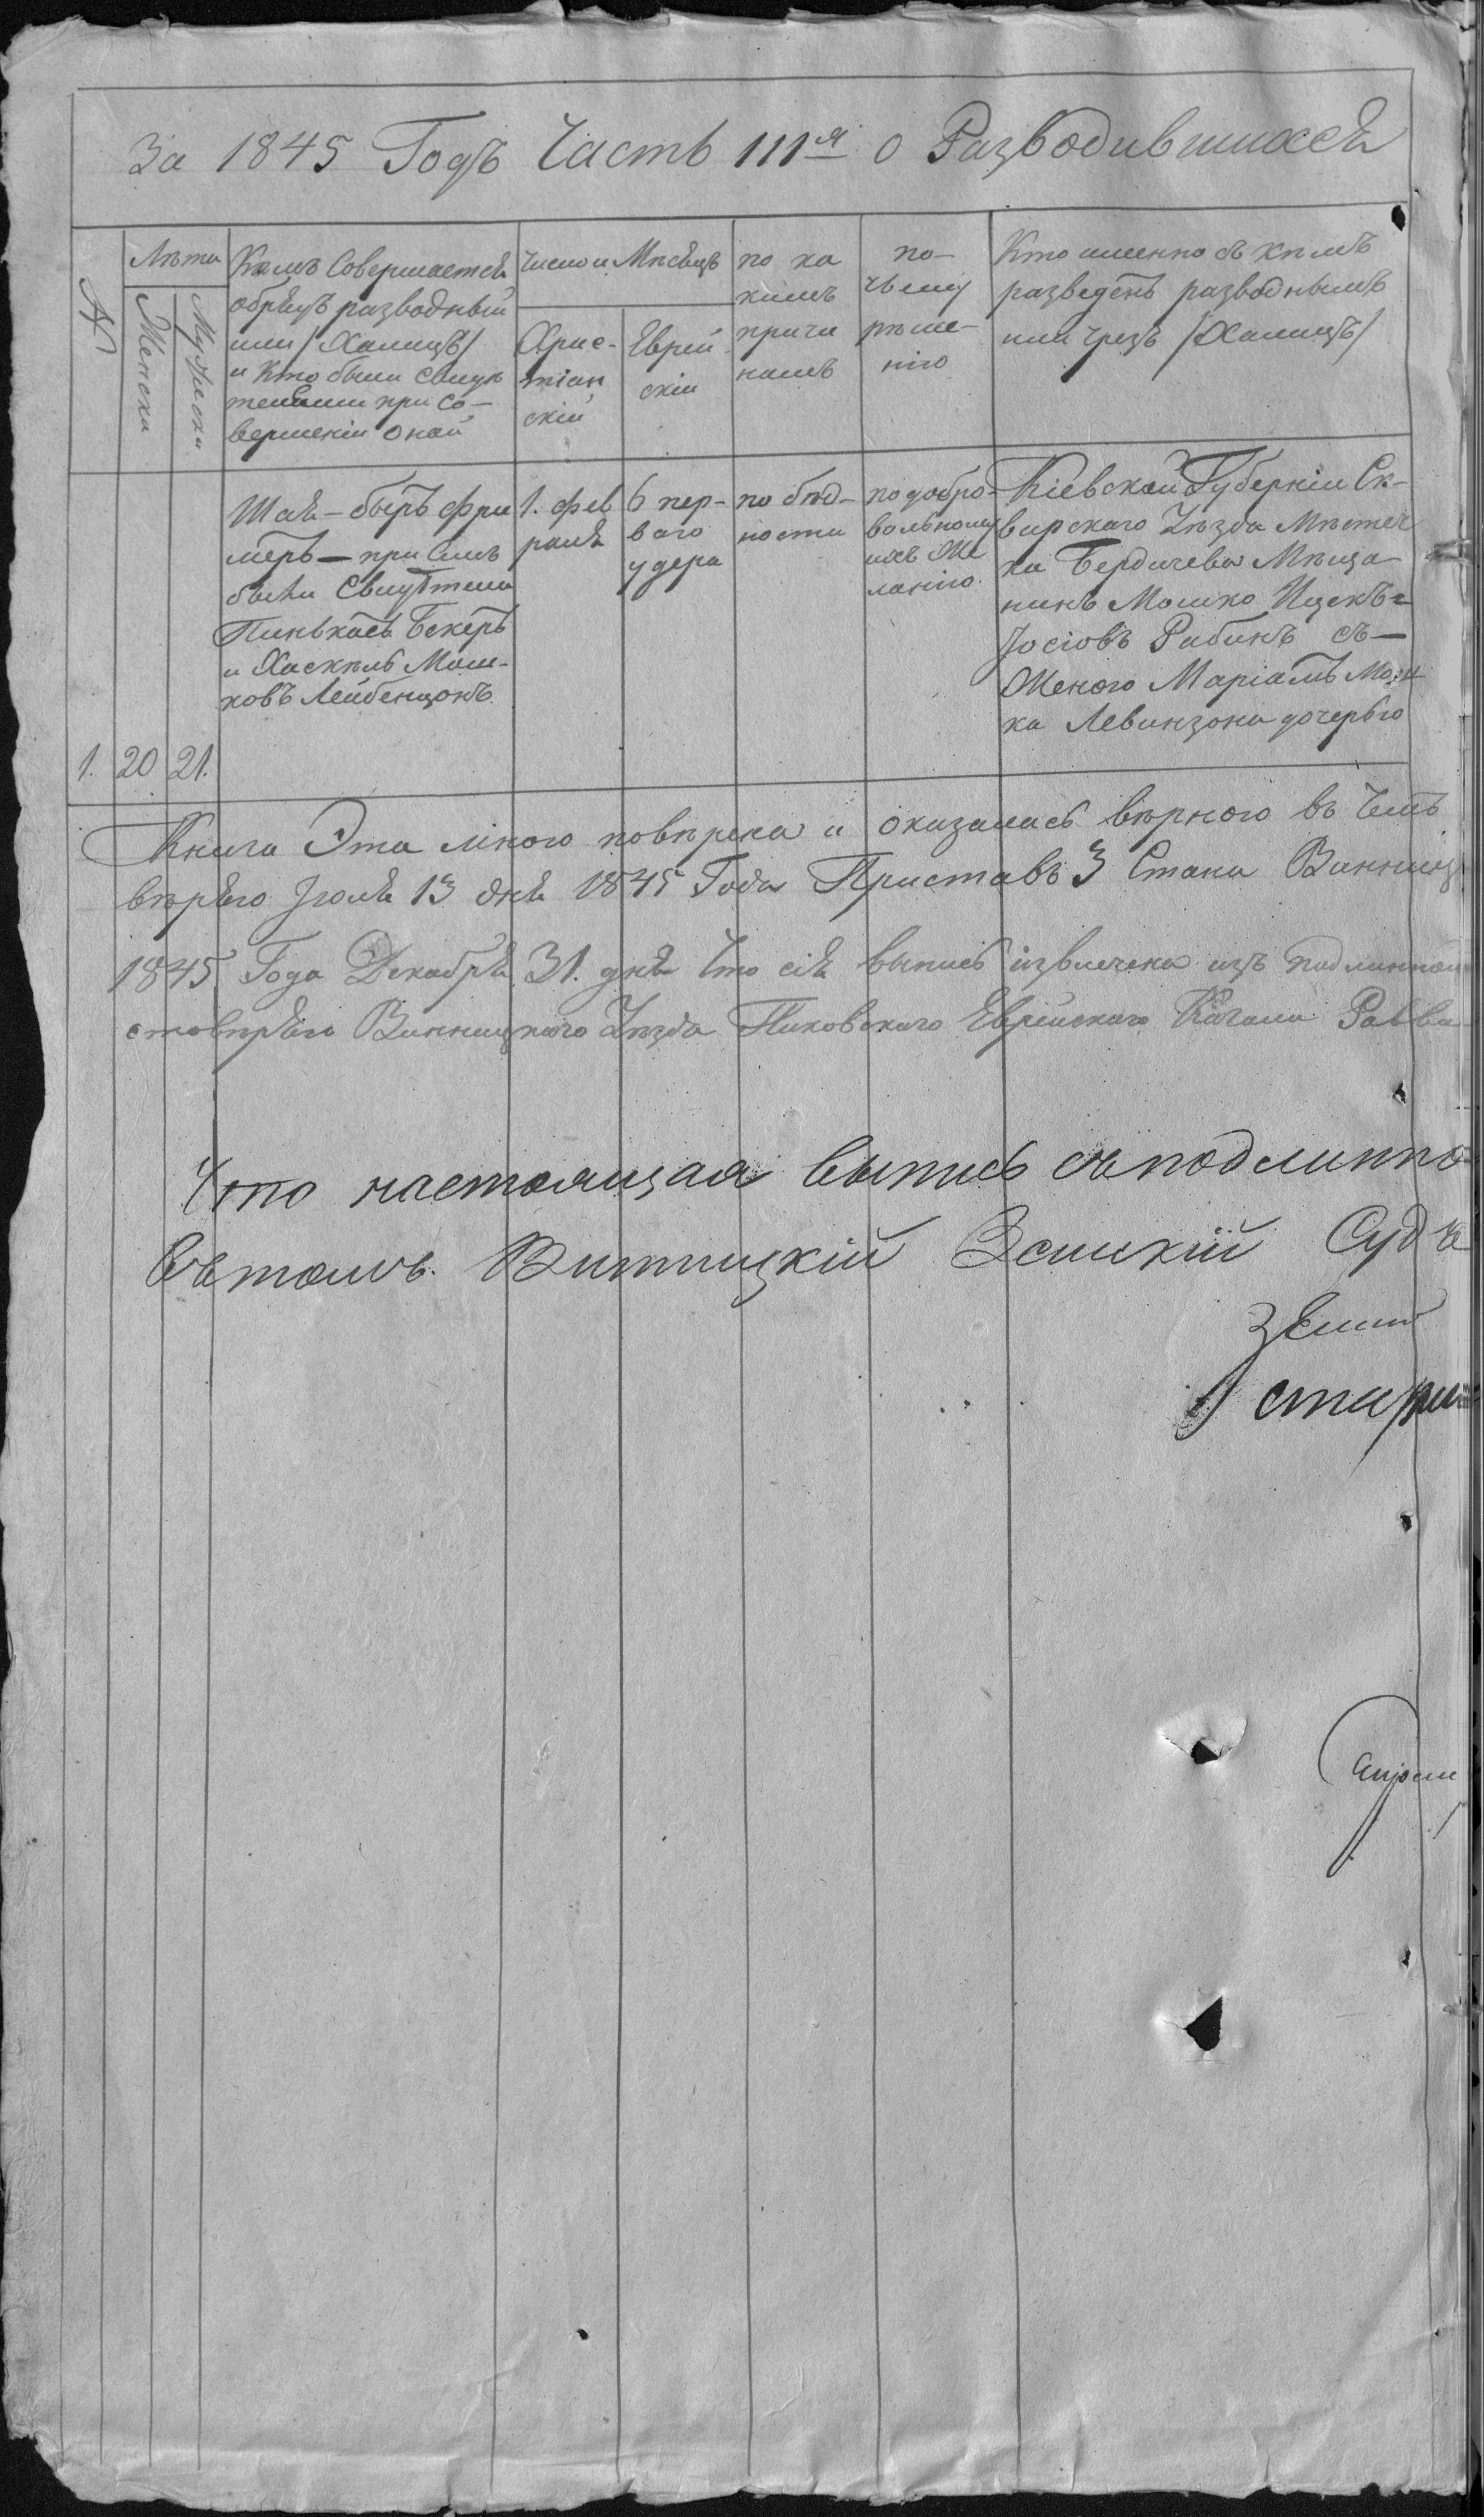 За 1845 Годъ Часть III я о Разводившихся
№
Лѣта
Женски
Мужески
Кѣмъ Совершается
обрядъ разводный
или /Халицъ/
и Кто были Свидѣ
телями при Со-
вершеніи оной
Число и Мѣсяцъ
Хрис-
тіан
скій
Еврей
скій
по ка
кимъ
причи
намъ
по-
чьему
рѣше-
нію
Кто именно съ кѣмъ
разведенъ разводнымъ
или чрезъ /Халицъ/
1.
20
21.
Шая – беръ фри
меръ – при Семъ
были Свидѣтели
Пинькасъ Бекеръ
и Хаскель Мош-
ковъ Лейбенцонъ
1. фев
раля
6 пер-
ваго
удера
по бѣд-
ности
по добро-
вольному
ихъ Же
ланію.
Кіевской Губерніи Ск-
вирскаго Уѣзда Мѣстеч
ка Бердичева Мѣща-
нинъ Мошко Ицекъ-
Іосіовъ Рабинъ съ –
Женою Маріамъ Мош
ка Левинзона дочерью
Книга Эта мною повѣрена и оказалась вѣрною въ чемъ
вѣряю Іюля 13 дня 1845 Года Приставъ 3 Стана Винниц
1845 Года Декабря 31. дня Что сія выпись извлечена изъ подлинной
стовѣряю Винницкаго Уѣзда Пиковскаго Еврейскаго Кагала Равви
Что настоящая выпись съ подлинно
въ томъ. Винницкій Земскій Судъ
Земск